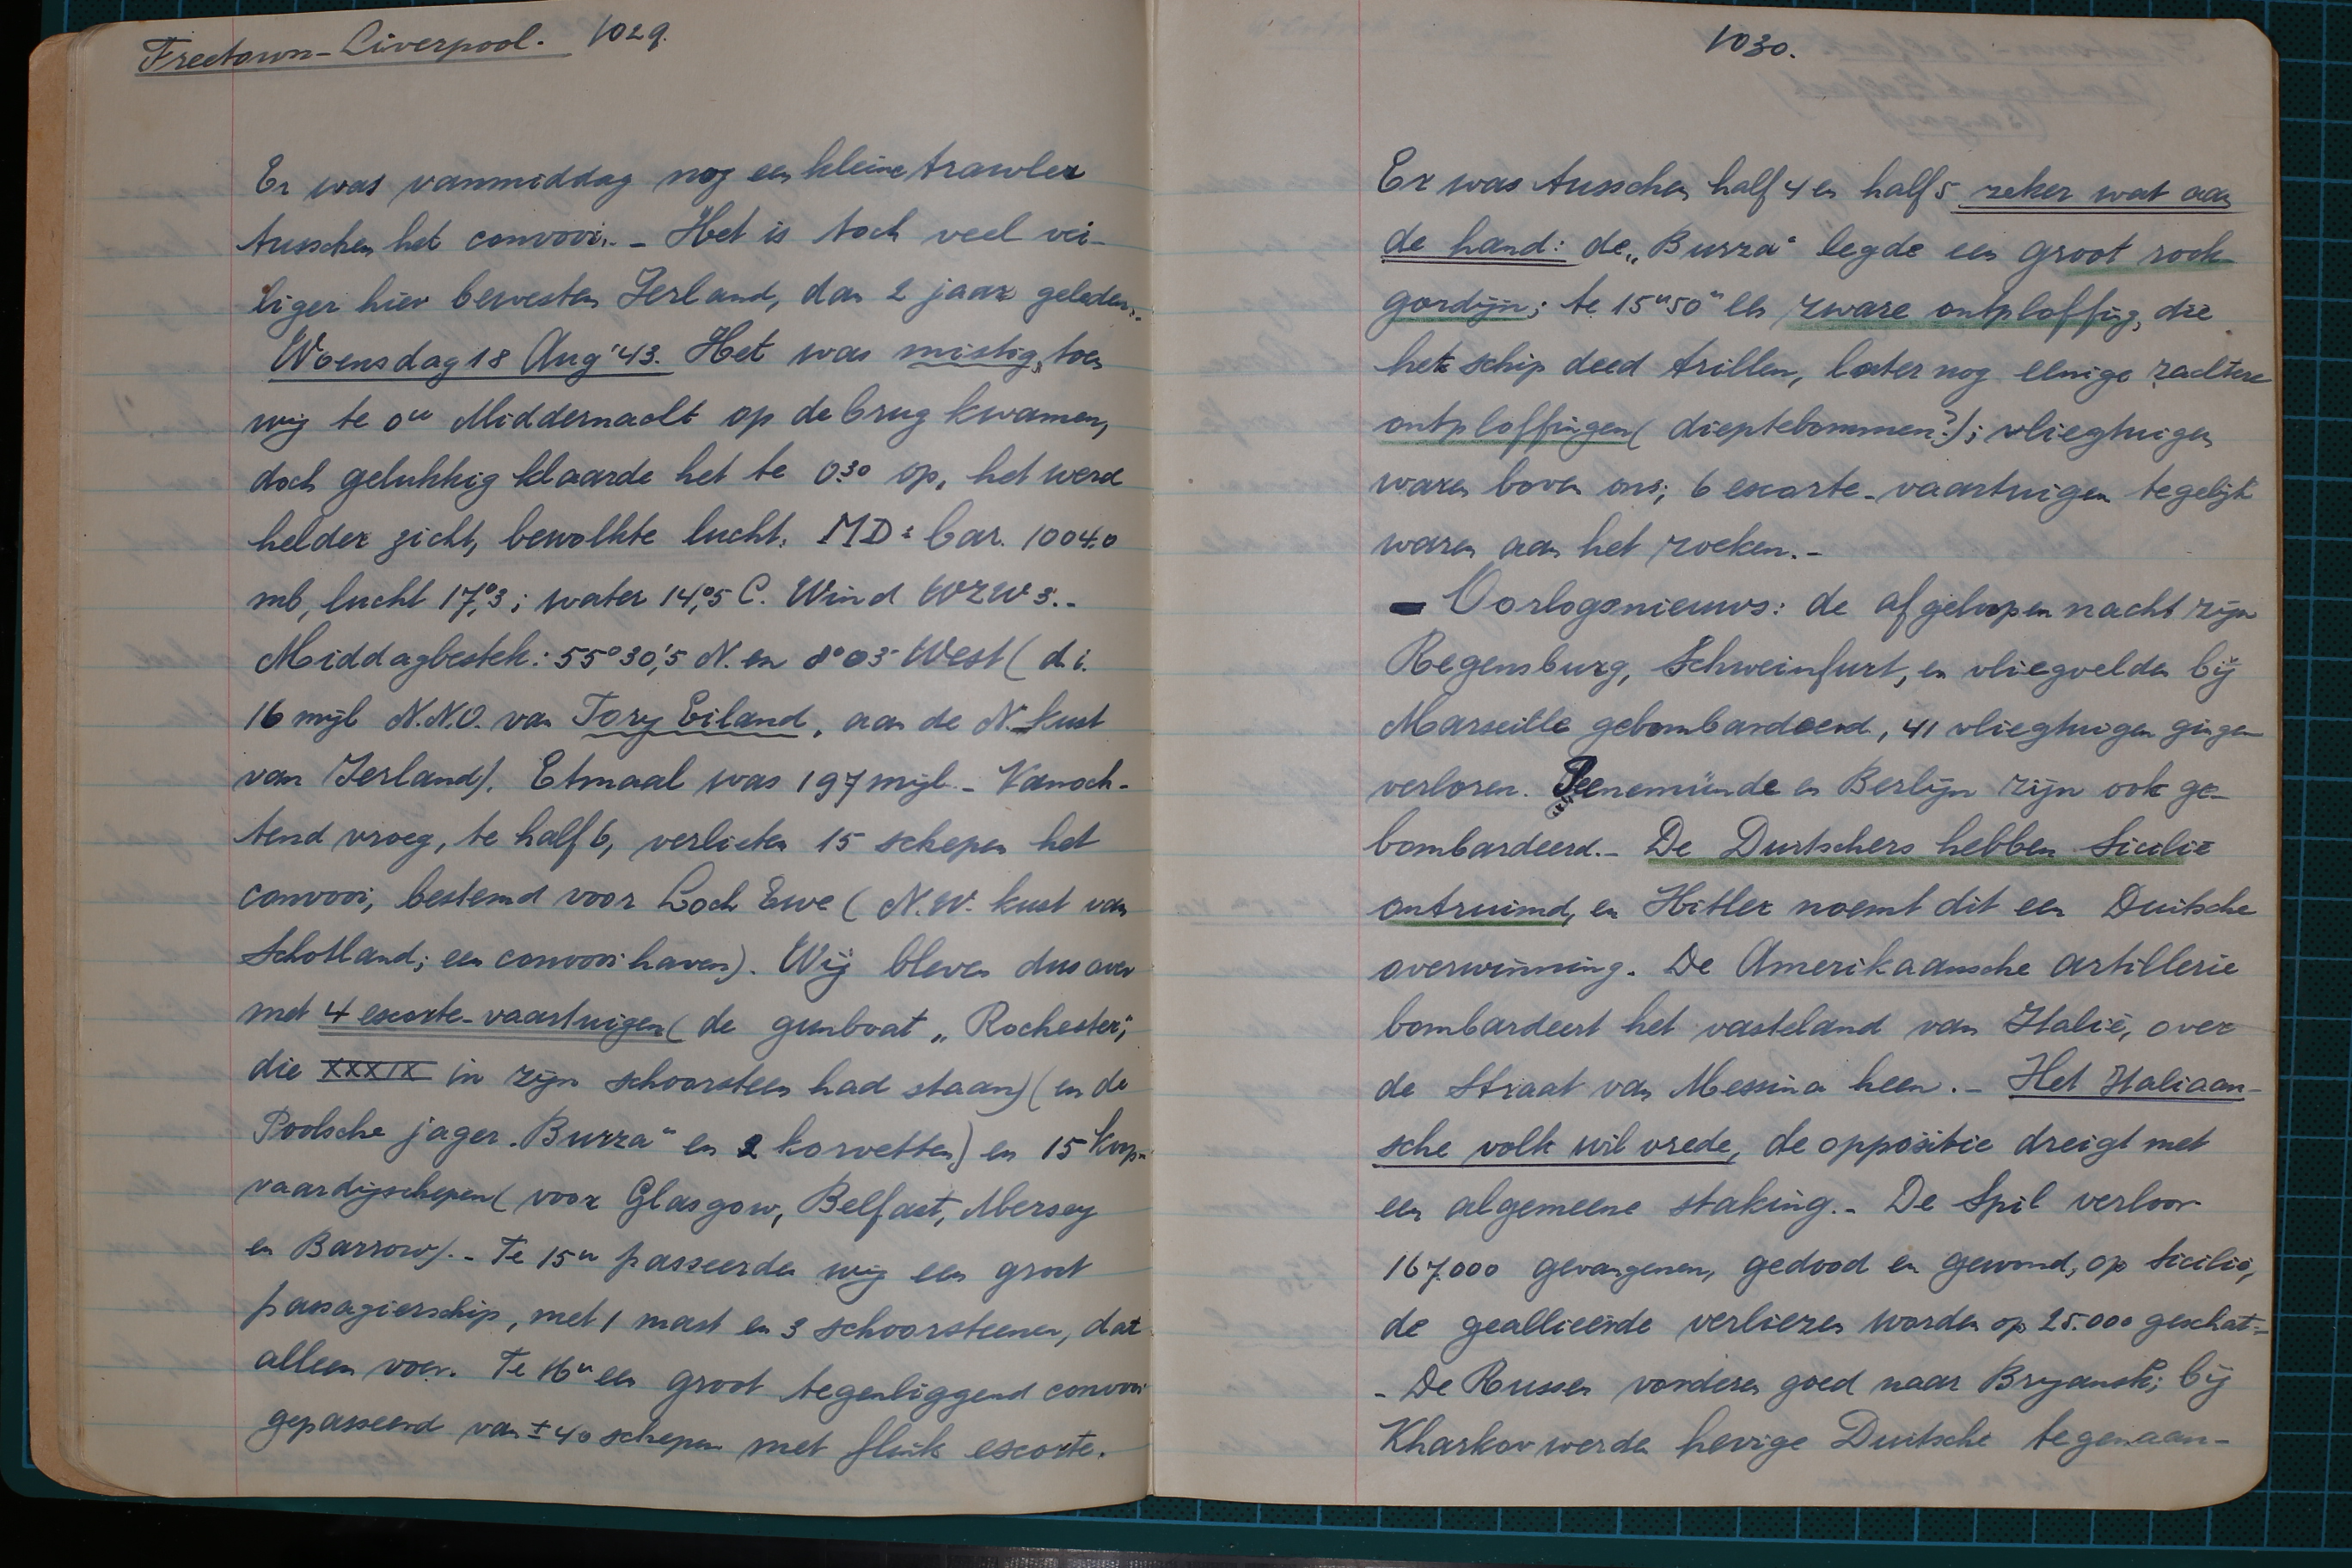 Freetown-Liverpool. 1029.
Er was vanmiddag nog een kleine trawler
tusschen het convooi. - Het is toch veel vei-
liger hier bewesten Ierland, dan 2 jaar geleden.-
Woensdag 18 Aug '43. Het was mistig, toen
wij te 0u Middernacht op de brug kwamen,
doch gelukkig klaarde het te 0.30 op, het werd
helder zicht, bewolkte lucht. MD: bar. 1004.0
mb, lucht 17,°3; water 14,°5 C. Wind WZW 3.-
Middagbestek: 55°30,'5 N. en 8°03 West (d.i.
16 mijl N.N.O. van Tory Eiland, aan de N.-kust
van Ierland). Etmaal was 197 mijl.- Vanoch-
tend vroeg, te half 6, verlieten 15 schepen het
convooi, bestemd voor Loch Ewe (N.W. kust van
Schotland; een convooihaven). Wij bleven dus over
met 4 escorte-vaartuigen (de gunboat „Rochester",
die XXXIX in zijn schoorsteen had staan) (en de
Poolsche jager „Burza" en 2 korvetten) en 15 koop-
vaardijschepen (voor Glasgow, Belfast, Mersey
en Barrow).- Te 15u passeerden wij een groot
passagierschip, met 1 mast en 3 schoorsteenen, dat
alleen voer. Te 16u een groot tegenliggend convooi
gepasseerd van ± 40 schepen met flink escorte.
1030.
Er was tusschen half 4 en half 5 zeker wat aan
de hand: de „Burza" legde een groot rook-
gordijn; te 15u50m een zware ontploffing, die
het schip deed trillen, later nog eenige zachtere
ontploffingen (dieptebommen?); vliegtuigen
waren boven ons; 6 escorte-vaartuigen tegelijk
waren aan het zoeken.-
- Oorlogsnieuws: de afgeloopen nacht zijn
Regensburg, Schweinfurt, en vliegvelden bij
Marseille gebombardeerd, 41 vliegtuigen gingen
verloren. Peenemünde en Berlijn zijn ook ge-
bombardeerd.- De Duitschers hebben Sicilië
ontruimd, en Hitler noemt dit een Duitsche
overwinning. De Amerikaansche artillerie
bombardeert het vasteland van Italië, over
de Straat van Messina heen.- Het Italiaan-
sche volk wil vrede, de oppositie dreigt met
een algemeene staking.- De Spil verloor
167.000 gevangenen, gedood en gewond, op Sicilië,
de geallieerde verliezen worden op 25.000 geschat.-
- De Russen vorderen goed naar Bryansk; bij
Kharkov werden hevige Duitsche tegenaan-